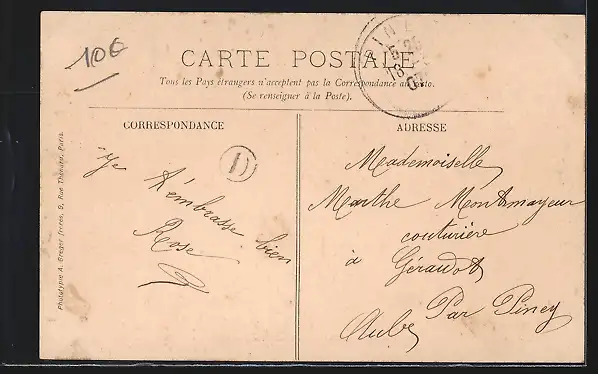 10€
CARTE POSTALE
Tous les Pays étrangers n'acceptent pas la Correspondance au recto.
(Se renseigner à la Poste).
CORRESPONDANCE
Je t'embrasse bien
Rose
D
ADRESSE
Mademoiselle
Marthe Montmayeur
couturière
à Géraudot
Par Piney
Aube
PINEY
18
07
Phototypie A. Breger frères, 9, Rue Thénard, Paris.